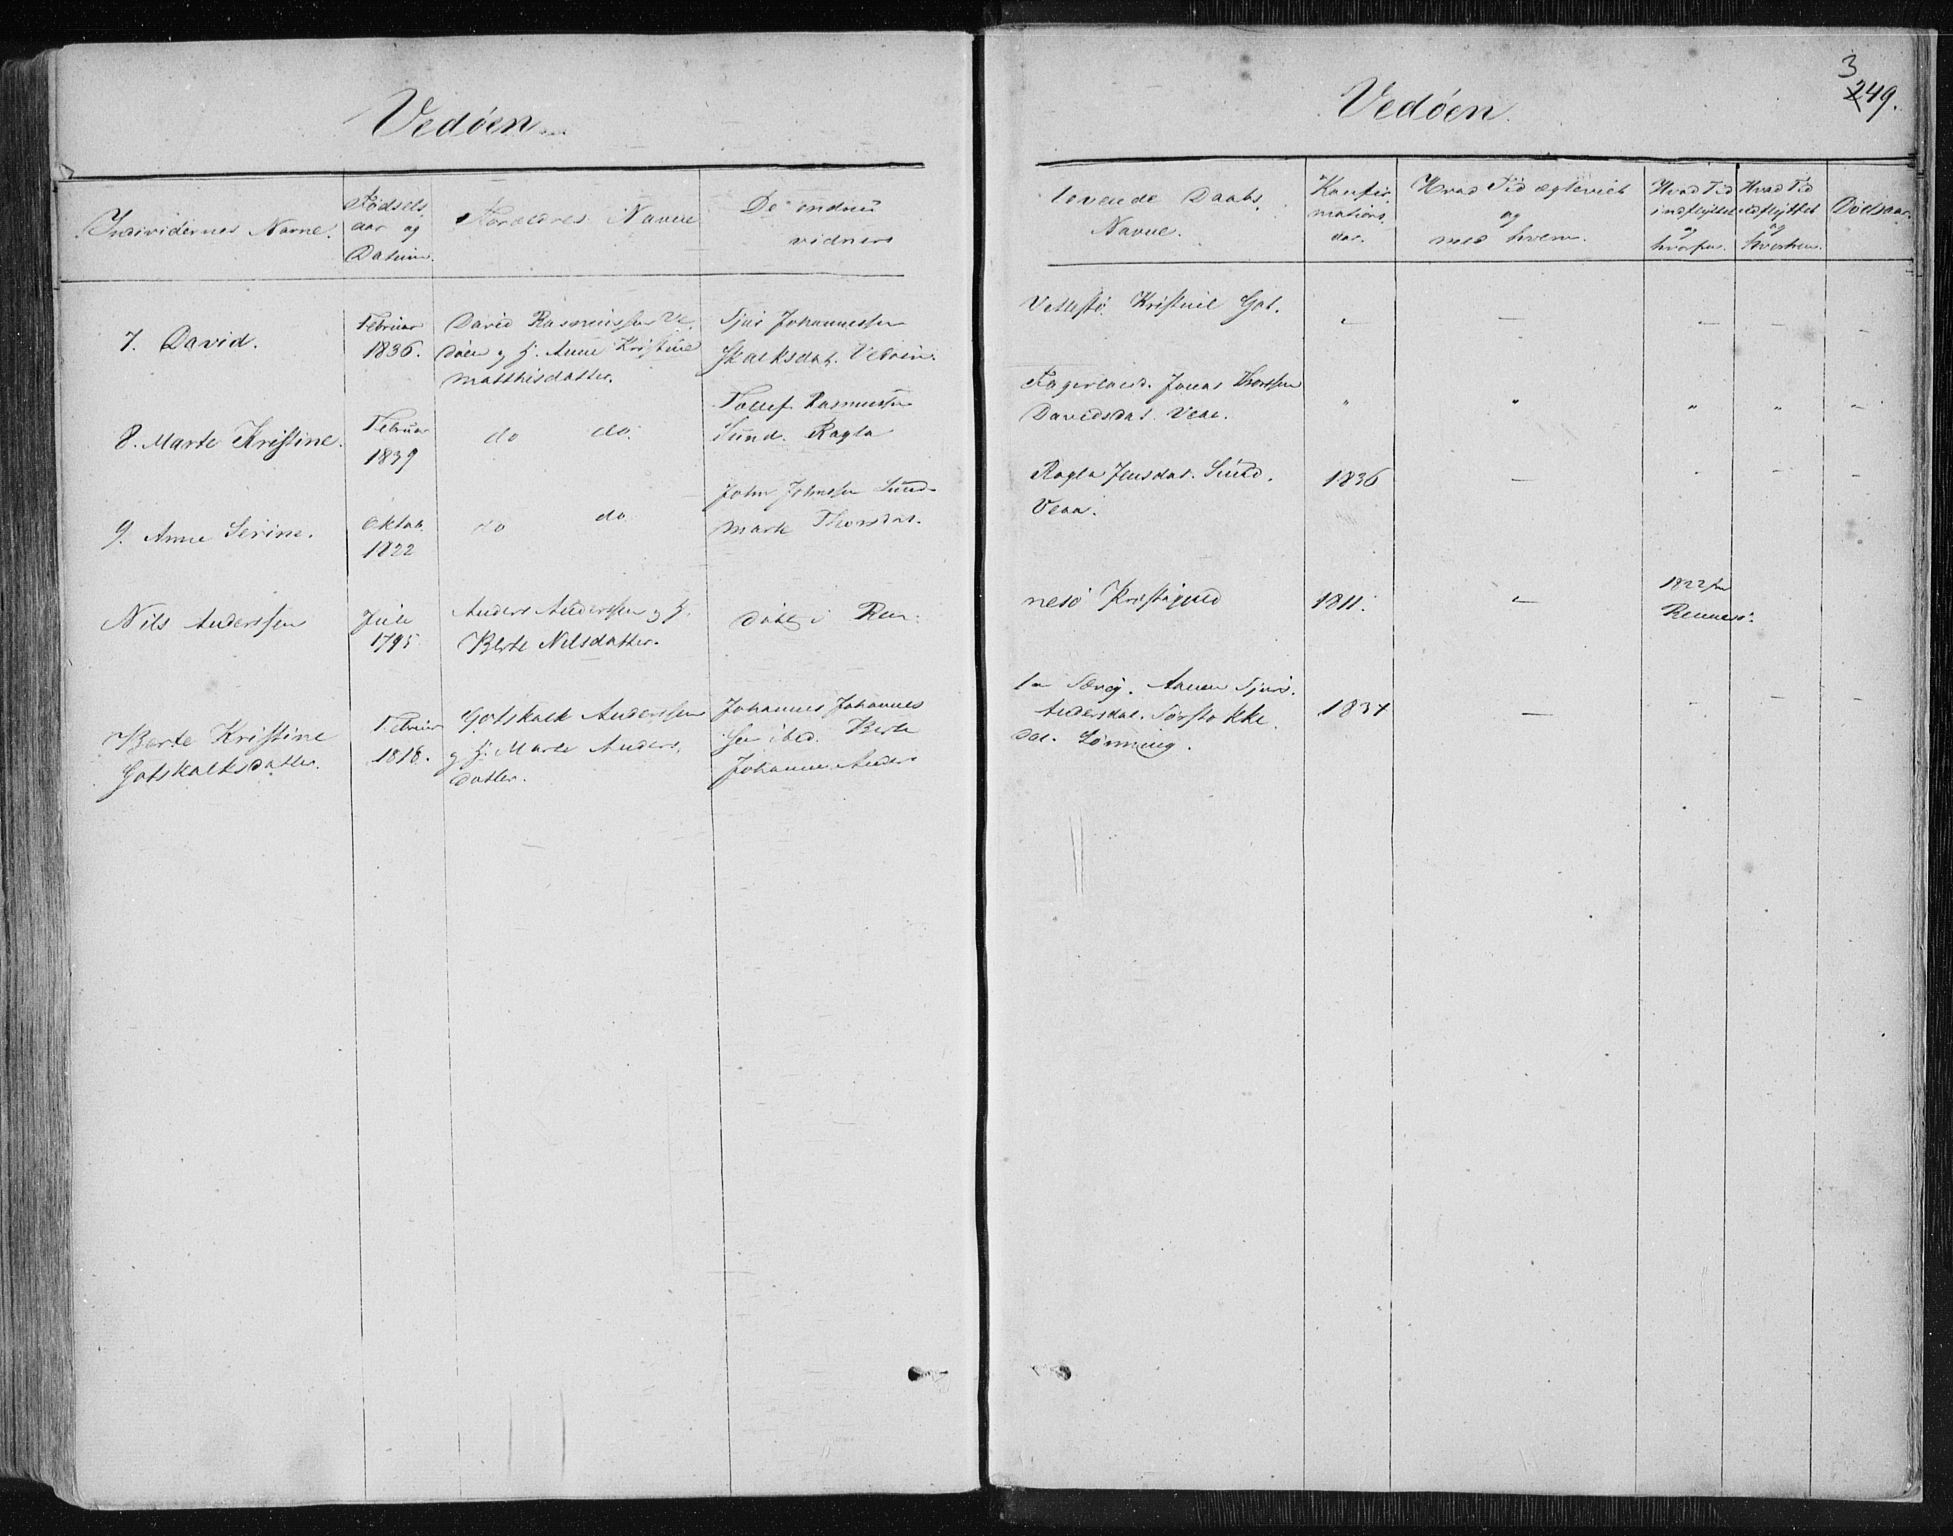 Vedöen
Individernes Navne.
Fødsels
aar og
Datum.
Forældres Navne
De endnu
vidners
7. David.
Februar
1836.
David Rasmussen Ve,
döen og H. Anne Kristine
Matthisdatter.
Sjur Johannessen
Skalksdat. Vedöen.
8. Marte Kristine.
Februar
1839
do do.
Tollef Rasmussen
Sund. Ragla
9. Anne Serine.
Oktob.
1822
do do
John Johnssen Sund
Marte Thorsdat.
Nils Anderssen
Juli
1795.
Anders Anderssen og H.
Berte Nilsdatter.
döbt i Ren:
Berte Kristine
Gotskalksdatter.
Februar
1818.
Gotskalk Anderssen
og H. Marte Anders,
datter.
Johannes Johannes
sen ibid. Berte
Johanne Anders
3
249.
Vedöen.
levende Daabs,
Navne.
Konfir,
mations
aar.
Hvad Tid ægteviet
og
med hvem.
Hvad Tid
indflyttet
og
hvorfra.
Hvad Tid
udflyttet
og
hvorhen.
Dödsaar.
Vestestö. Kristine Got.
Fagerland. Jonas Thorssen
Davidsdat. Veaa.
Ragla Jensdat. Sund.
Veaa.
1836
nesö Præstegjeld
1811.
1822 fra
Rennesö.
Sævig. Aanen Sjurs.
Andersdat. Törstokke
dal. Lönning.
1834